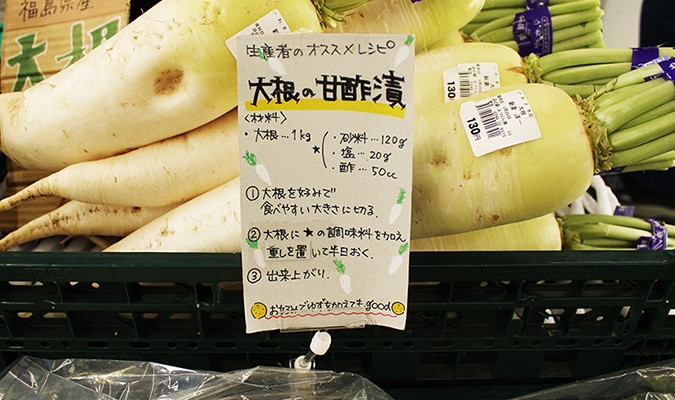 福島県産
大根
生産者のオススメレシピ
大根の甘酢漬
〈材料〉
・大根…1kg
★
・砂料…120g
・塩…20g
・酢…50cc
① 大根を好みで
食べやすい大きさに切る.
② 大根に★の調味料を加え
重しを置いて半日おく.
③ 出来上がり.
お好みでゆずを加えても good
130円
130円